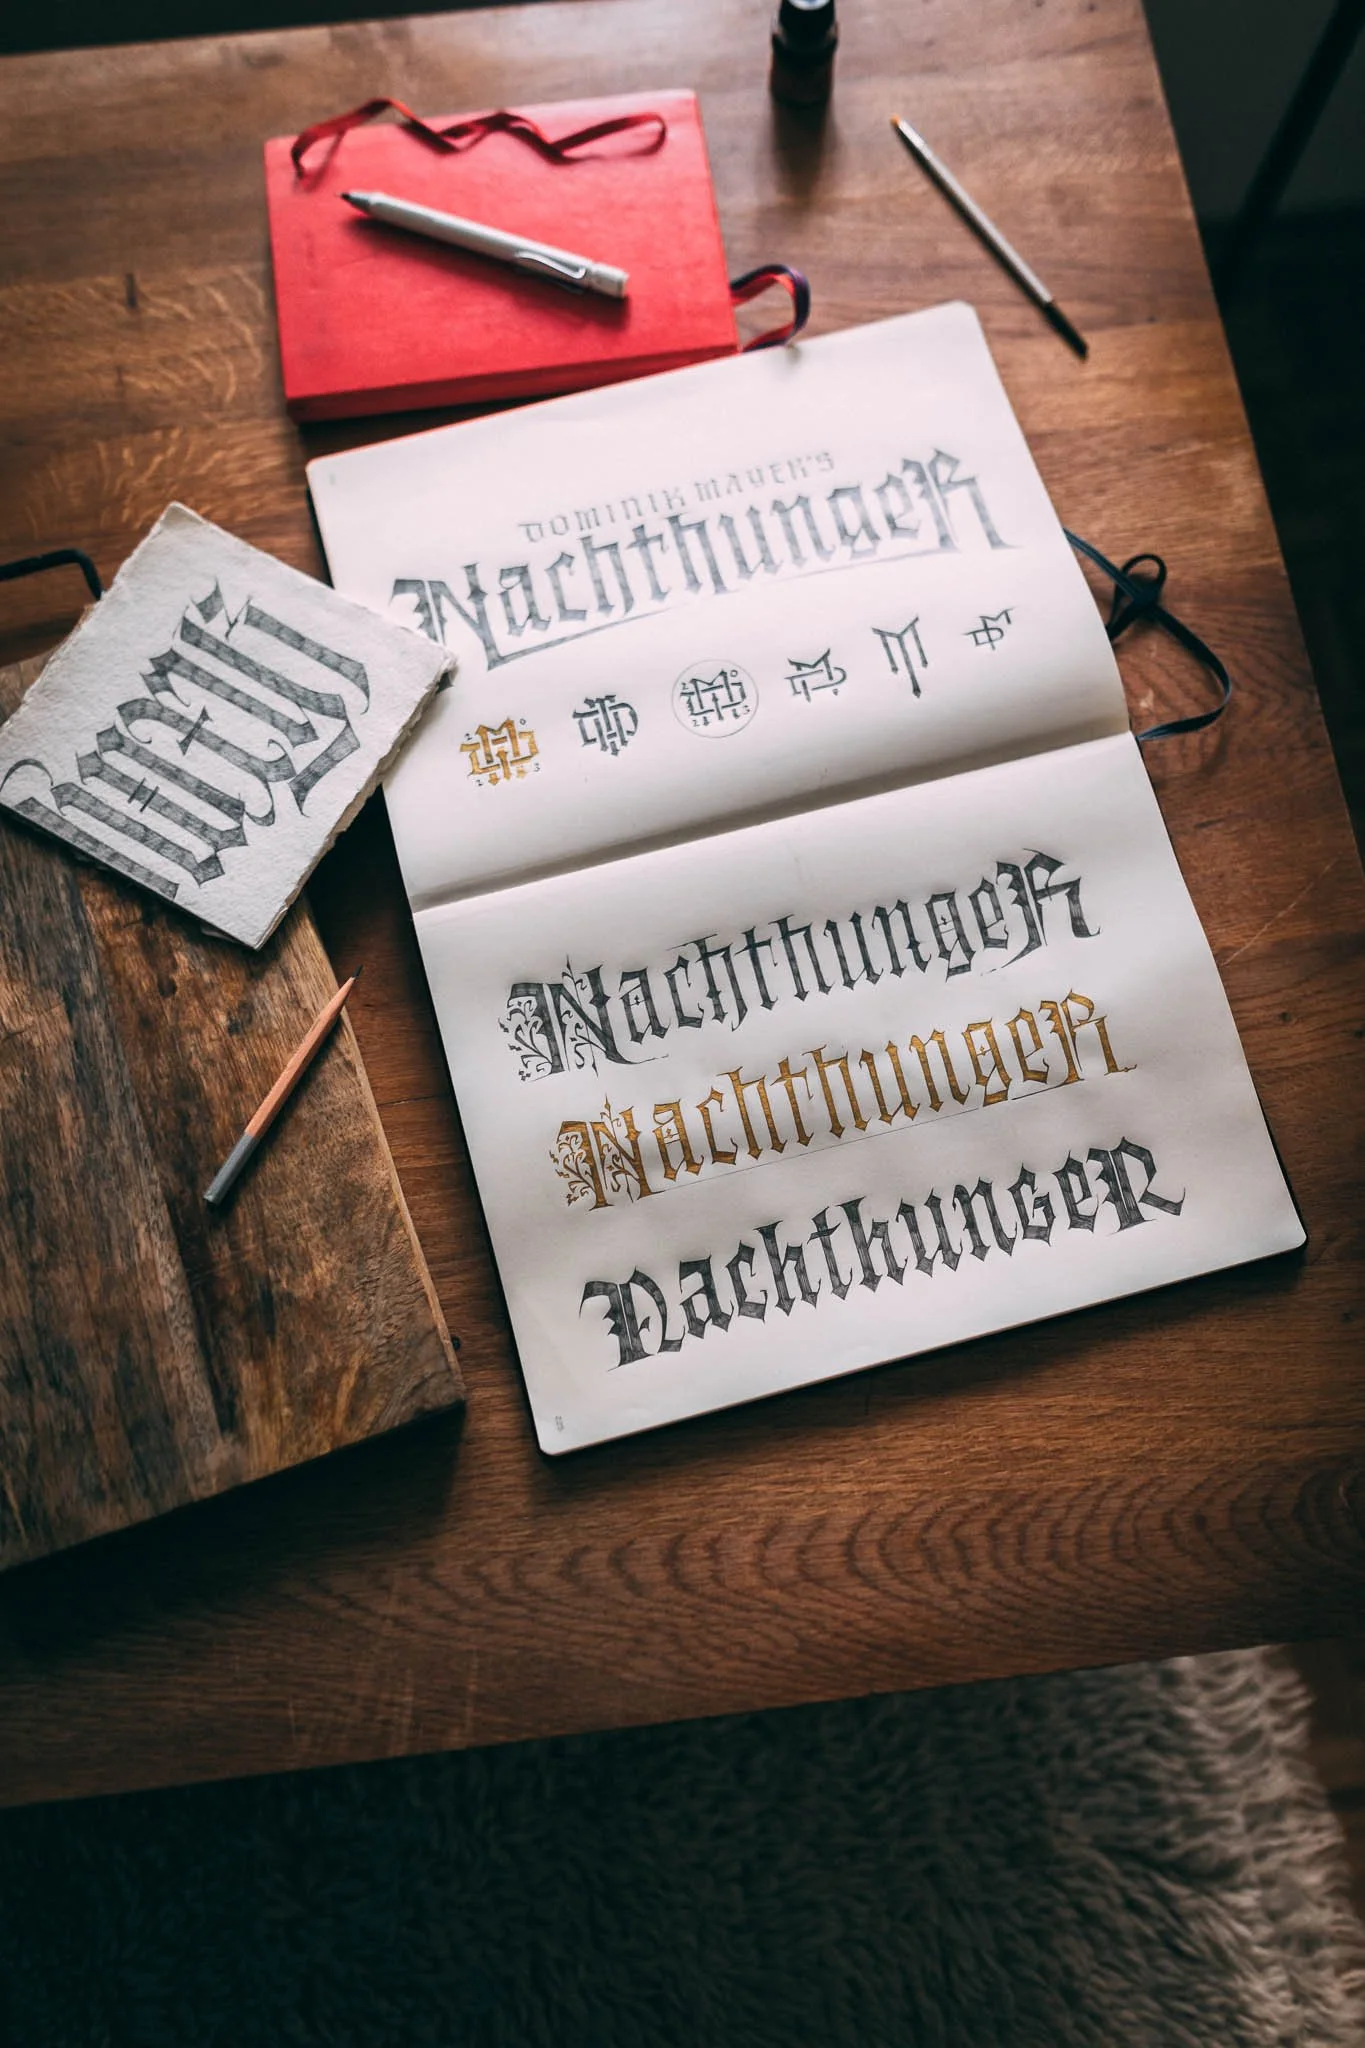 DOMINIK MAYER'S
NachthungeR
2 0
2 3
NachthungeR
NachthungeR
NachthungeR